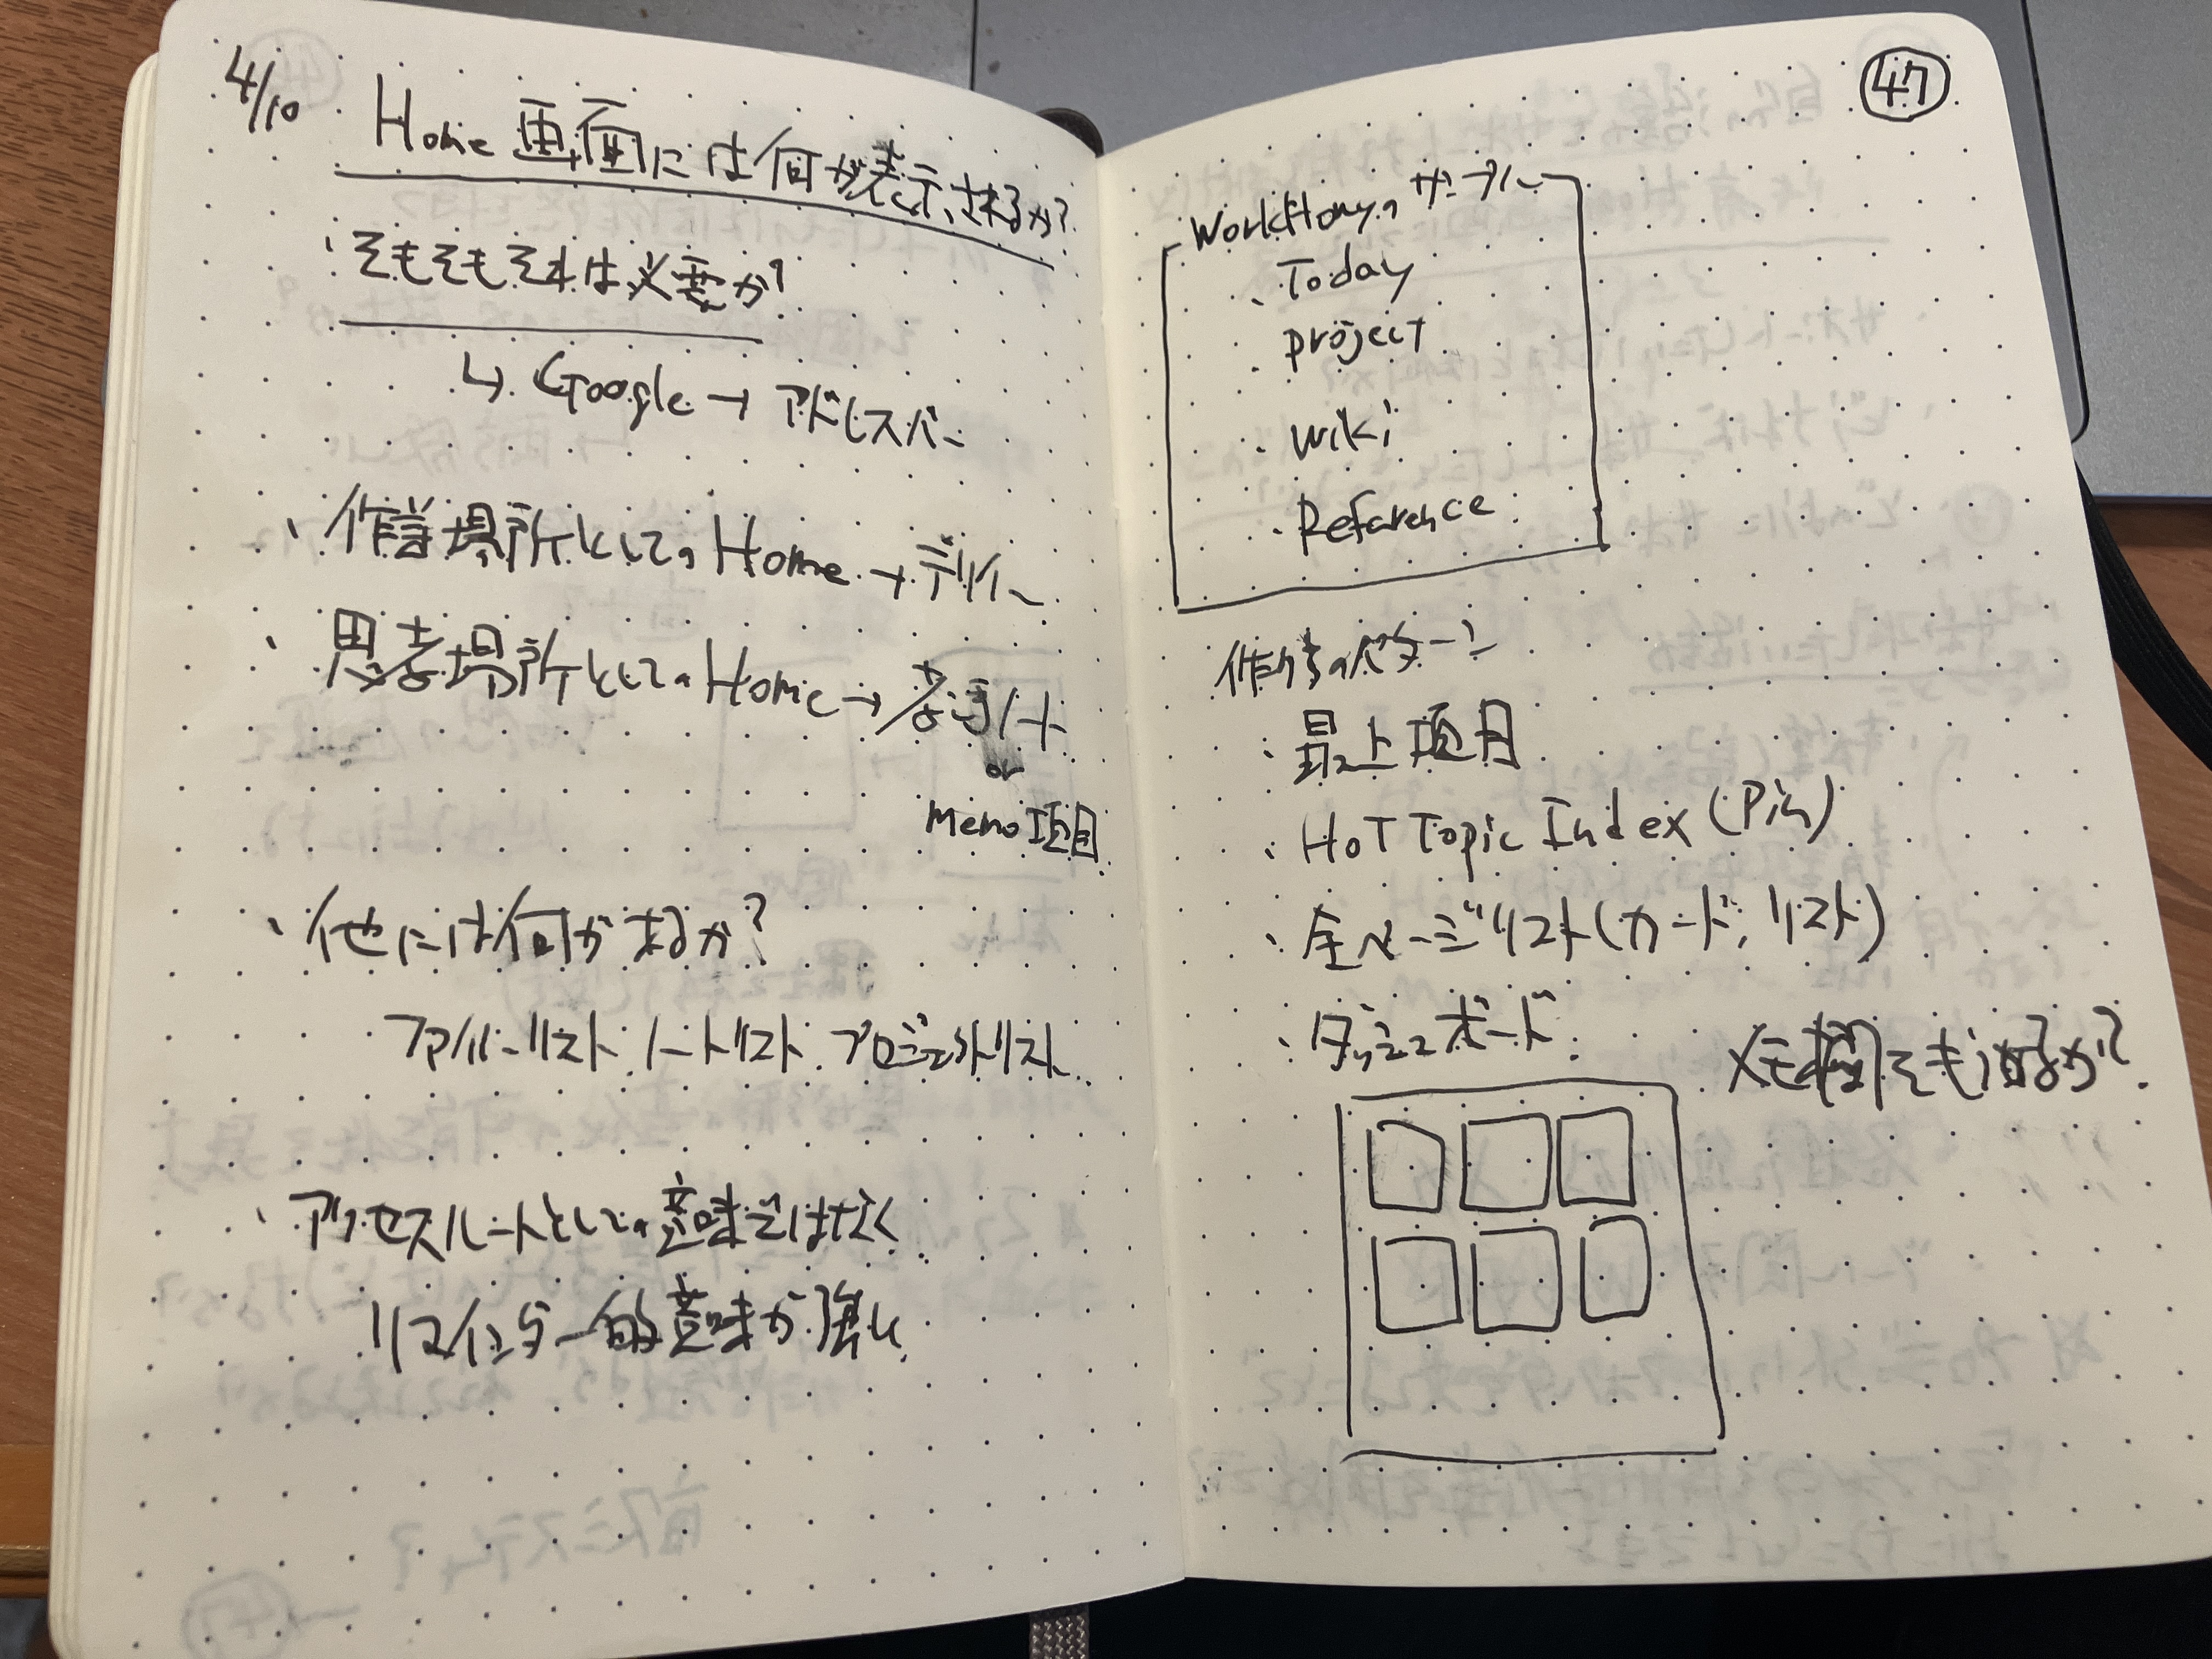 4/10
Home画面には何が表示されるか?
・そもそもそれは必要か?
↳ Google → アドレスバー
・作業場所としてのHome → デイリー
・思考場所としてのHome →
or
Memo項目
・他には何があるか?
ファイルリスト、ノートリスト、プロジェクトリスト
・アクセスルートとしての意味ではなく
リマインダー的意味が強い
47
WorkFlowyのサンプル
・Today
・project
・Wiki
・Reference
作成のパターン
・最上項目
・HoT Topic Index (Pin)
・全ページリスト(カード、リスト)
・ダッシュボード
メモ欄そもいるか?